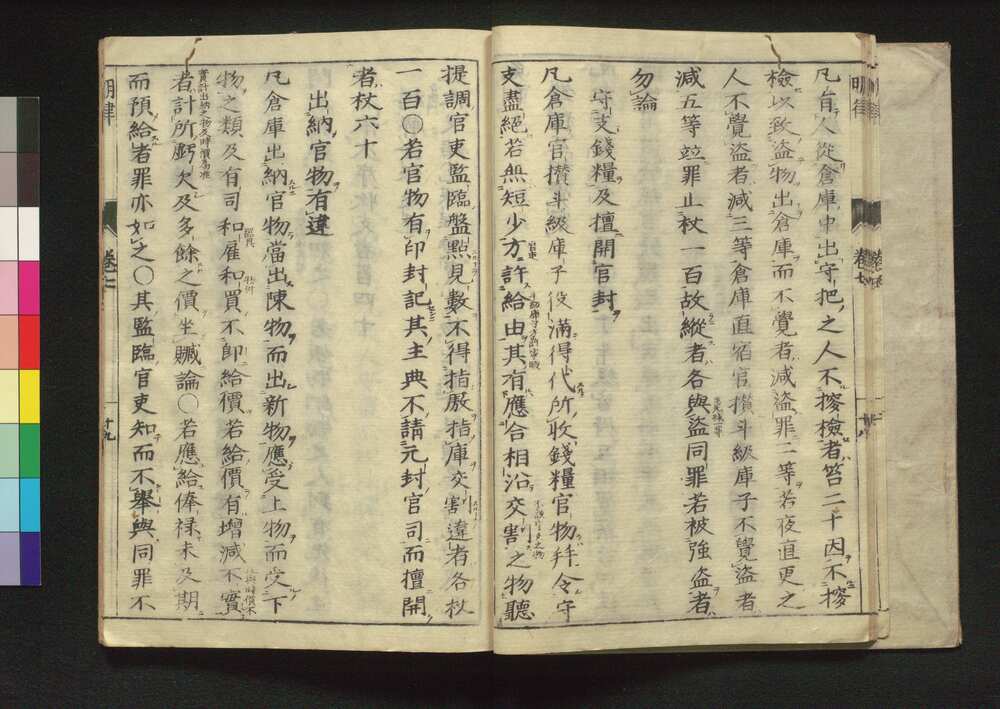 凡有人從倉庫中出守把之人不搜檢者笞二十因不搜
檢以致盜物出倉庫而不覺者減盜罪二等若夜直更之
人不覺盜者減三等倉庫直宿官攢斗級庫子不覺盜者
減五等竝罪止杖一百故縱者各與盜同罪若被強盜者
勿論
守支錢糧及擅開官封
凡倉庫官攢斗級庫子役滿得代所收錢糧官物幷令守
支盡絕若無短少方許給由其有應合相沿交割之物聽
提調官吏監臨盤點見數不得指廒指庫交割違者各杖
一百〇若官物有印封記其主典不請元封官司而擅開
者杖六十
出納官物有違
凡倉庫出納官物當出陳物而出新物應受上物而受下
物之類及有司和雇和買不即給價若給價有增減不實
者計所虧欠及多餘之價坐贓論〇若應給俸祿未及期
而預給者罪亦如之〇其監臨官吏知而不舉與同罪不
明律
卷七
十九